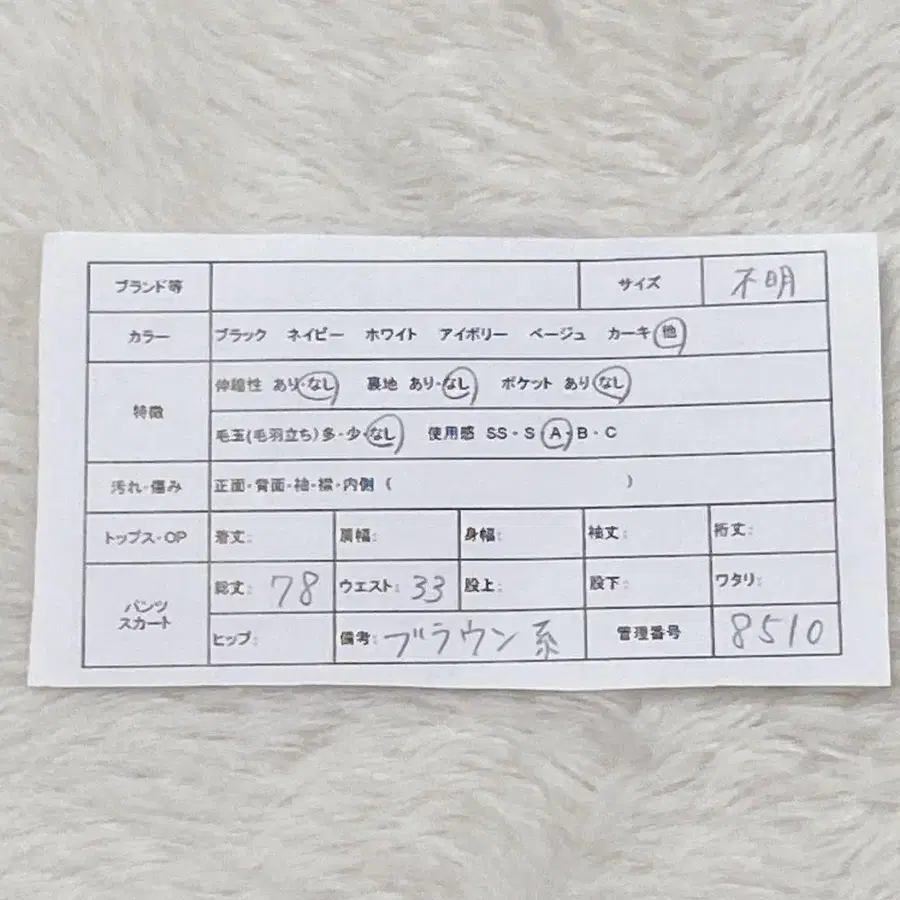 ブランド等 サイズ 不明
カラー ブラック ネイビー ホワイト アイボリー ベージュ カーキ 他
特徴 伸縮性 あり・なし 裏地 あり・なし ポケット あり なし
毛玉(毛羽立ち)多・少・なし 使用感 SS・S・A・B・C
汚れ・傷み 正面・背面・袖・襟・内側 ( )
トップス・OP 着丈: 肩幅: 身幅: 袖丈: 裄丈:
パンツ スカート 総丈: 78 ウエスト: 33 股上: 股下: ワタリ:
ヒップ: 備考: ブラウン系 管理番号 8510